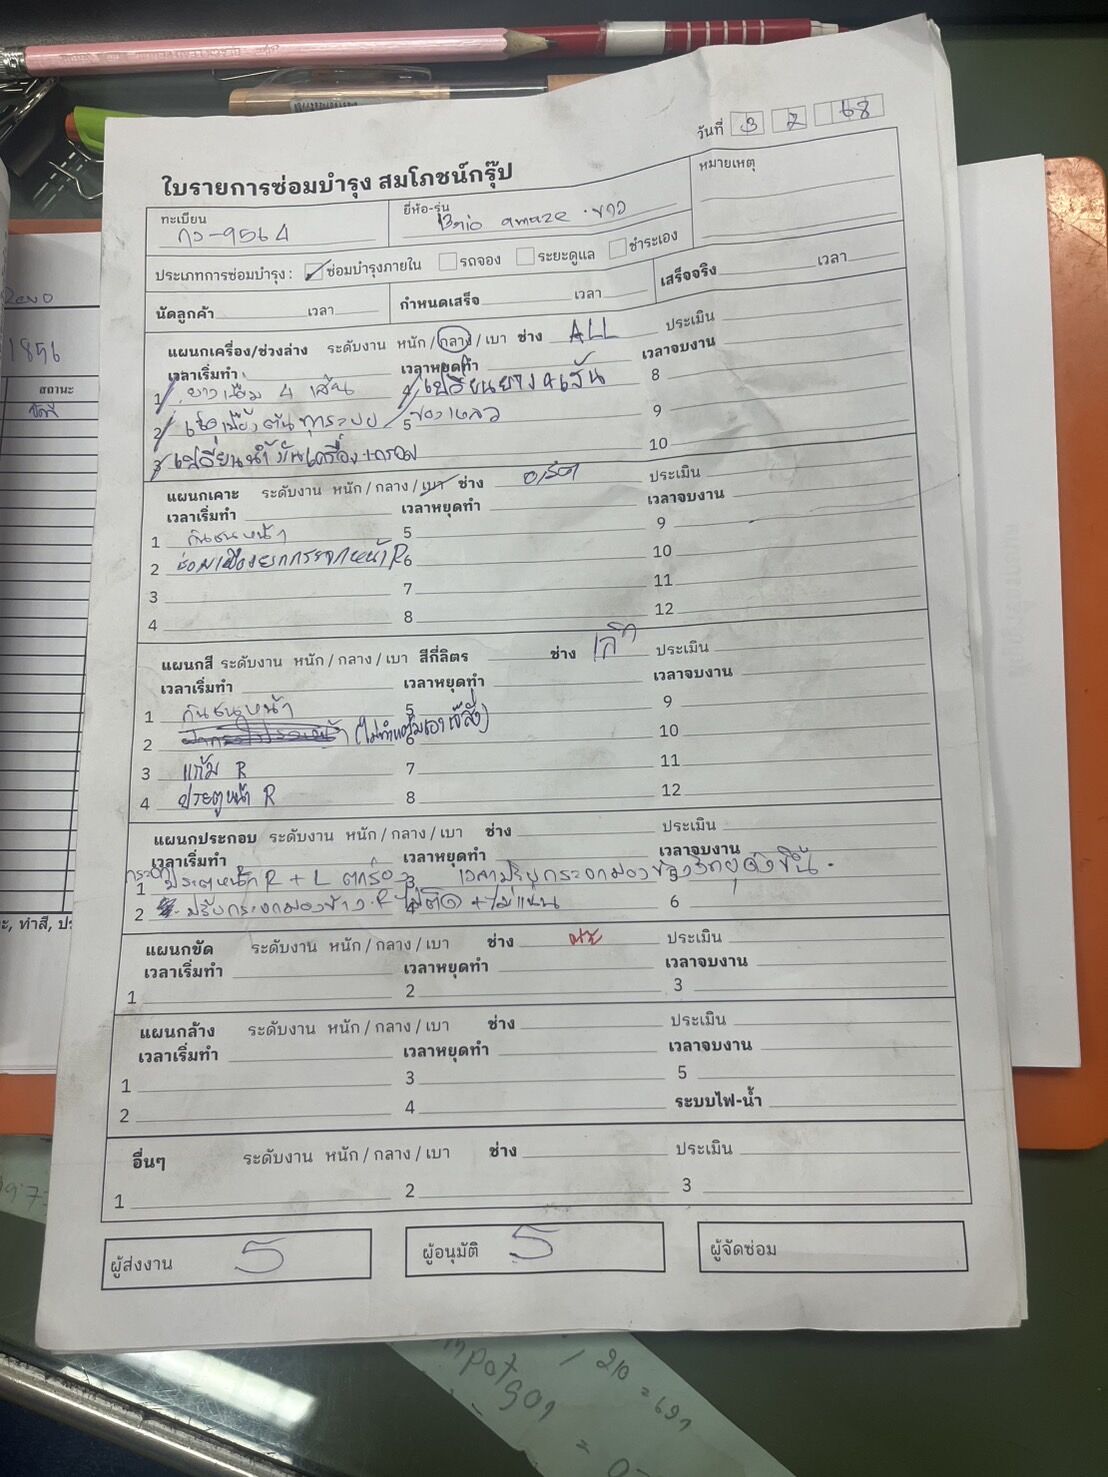 วันที่ 3 2 68
ใบรายการซ่อมบำรุง สมโภชน์กรุ๊ป
หมายเหตุ
ทะเบียน กว-9564 ยี่ห้อ-รุ่น Brio amaze ขาว
ประเภทการซ่อมบำรุง : ซ่อมบำรุงภายใน รถจอง ระยะดูแล ชำระเอง
นัดลูกค้า เวลา กำหนดเสร็จ เวลา เสร็จจริง เวลา
แผนกเครื่อง/ช่วงล่าง ระดับงาน หนัก / กลาง / เบา ช่าง ALL ประเมิน
เวลาเริ่มทำ เวลาหยุดทำ เวลาจบงาน
1 ยางเดิม 4 เส้น 4 เปลี่ยนยาง 4 เส้น 8
2 เช็คเบื้องต้นทุกระบบ 5 ของเหลว 9
3 เปลี่ยนน้ำมันเครื่อง+กรอง 10
แผนกเคาะ ระดับงาน หนัก / กลาง / เบา ช่าง ประเมิน
เวลาเริ่มทำ เวลาหยุดทำ เวลาจบงาน
1 กันชนหน้า 5 9
2 กระจกหน้า R 6 10
3 7 11
4 8 12
แผนกสี ระดับงาน หนัก / กลาง / เบา สีกี่ลิตร ช่าง ประเมิน
เวลาเริ่มทำ เวลาหยุดทำ เวลาจบงาน
1 กันชนหน้า 5 9
2 6 10
3 แก้ม R 7 11
4 ประตูหน้า R 8 12
แผนกประกอบ ระดับงาน หนัก / กลาง / เบา ช่าง ประเมิน
เวลาเริ่มทำ เวลาหยุดทำ เวลาจบงาน
กระจก
1 ประตูหน้า R + L ตกร่อง 3 เวลาปรับกระจกมองข้างวิทยุดังขึ้น 5
2 ปรับกระจกมองข้าง R ไม่ติด + ไม่แน่น 4 6
แผนกขัด ระดับงาน หนัก / กลาง / เบา ช่าง ประเมิน
เวลาเริ่มทำ เวลาหยุดทำ เวลาจบงาน
1 2 3
แผนกล้าง ระดับงาน หนัก / กลาง / เบา ช่าง ประเมิน
เวลาเริ่มทำ เวลาหยุดทำ เวลาจบงาน
1 3 5
2 4 ระบบไฟ-น้ำ
อื่นๆ ระดับงาน หนัก / กลาง / เบา ช่าง ประเมิน
1 2 3
ผู้ส่งงาน 5 ผู้อนุมัติ 5 ผู้จัดซ่อม
1856
สถานะ
, ทำสี,
/ 210